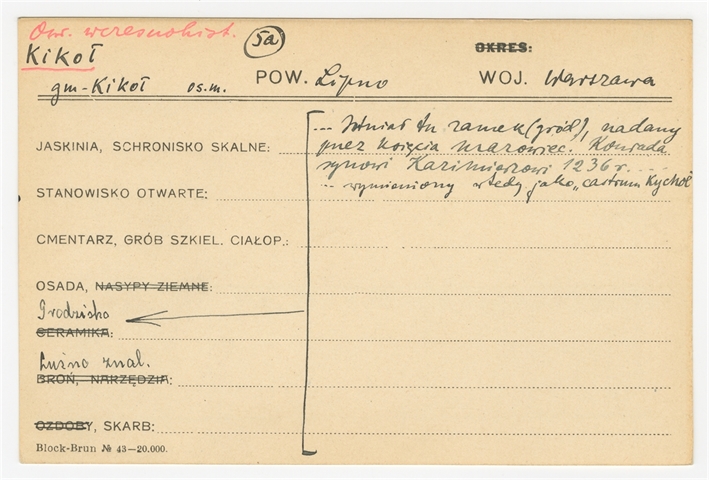 Osw. wczesnohist.
Kikoł
5a
OKRES:
gm - Kikoł os.m. POW. Lipno WOJ. Warszawa
... Istniał tu zamek (gród), nadany
JASKINIA, SCHRONISKO SKALNE: przez księcia mazowiec. Konrada
synowi Kazimierzowi 1236 r. ....
STANOWISKO OTWARTE: ... wymieniony wtedy jako „castrum Kychol
CMENTARZ, GRÓB SZKIEL. CIAŁOP.:
OSADA, NASYPY ZIEMNE:
Grodzisko
CERAMIKA:
Luźno znal.
BROŃ, NARZĘDZIA:
OZDOBY, SKARB:
Block-Brun № 43—20.000.